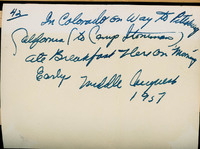 42
In Colorado on Way to Pittsburg
California (to Camp Stoneman)
ate Breakfast Here on Morning
Early Middle August
1957